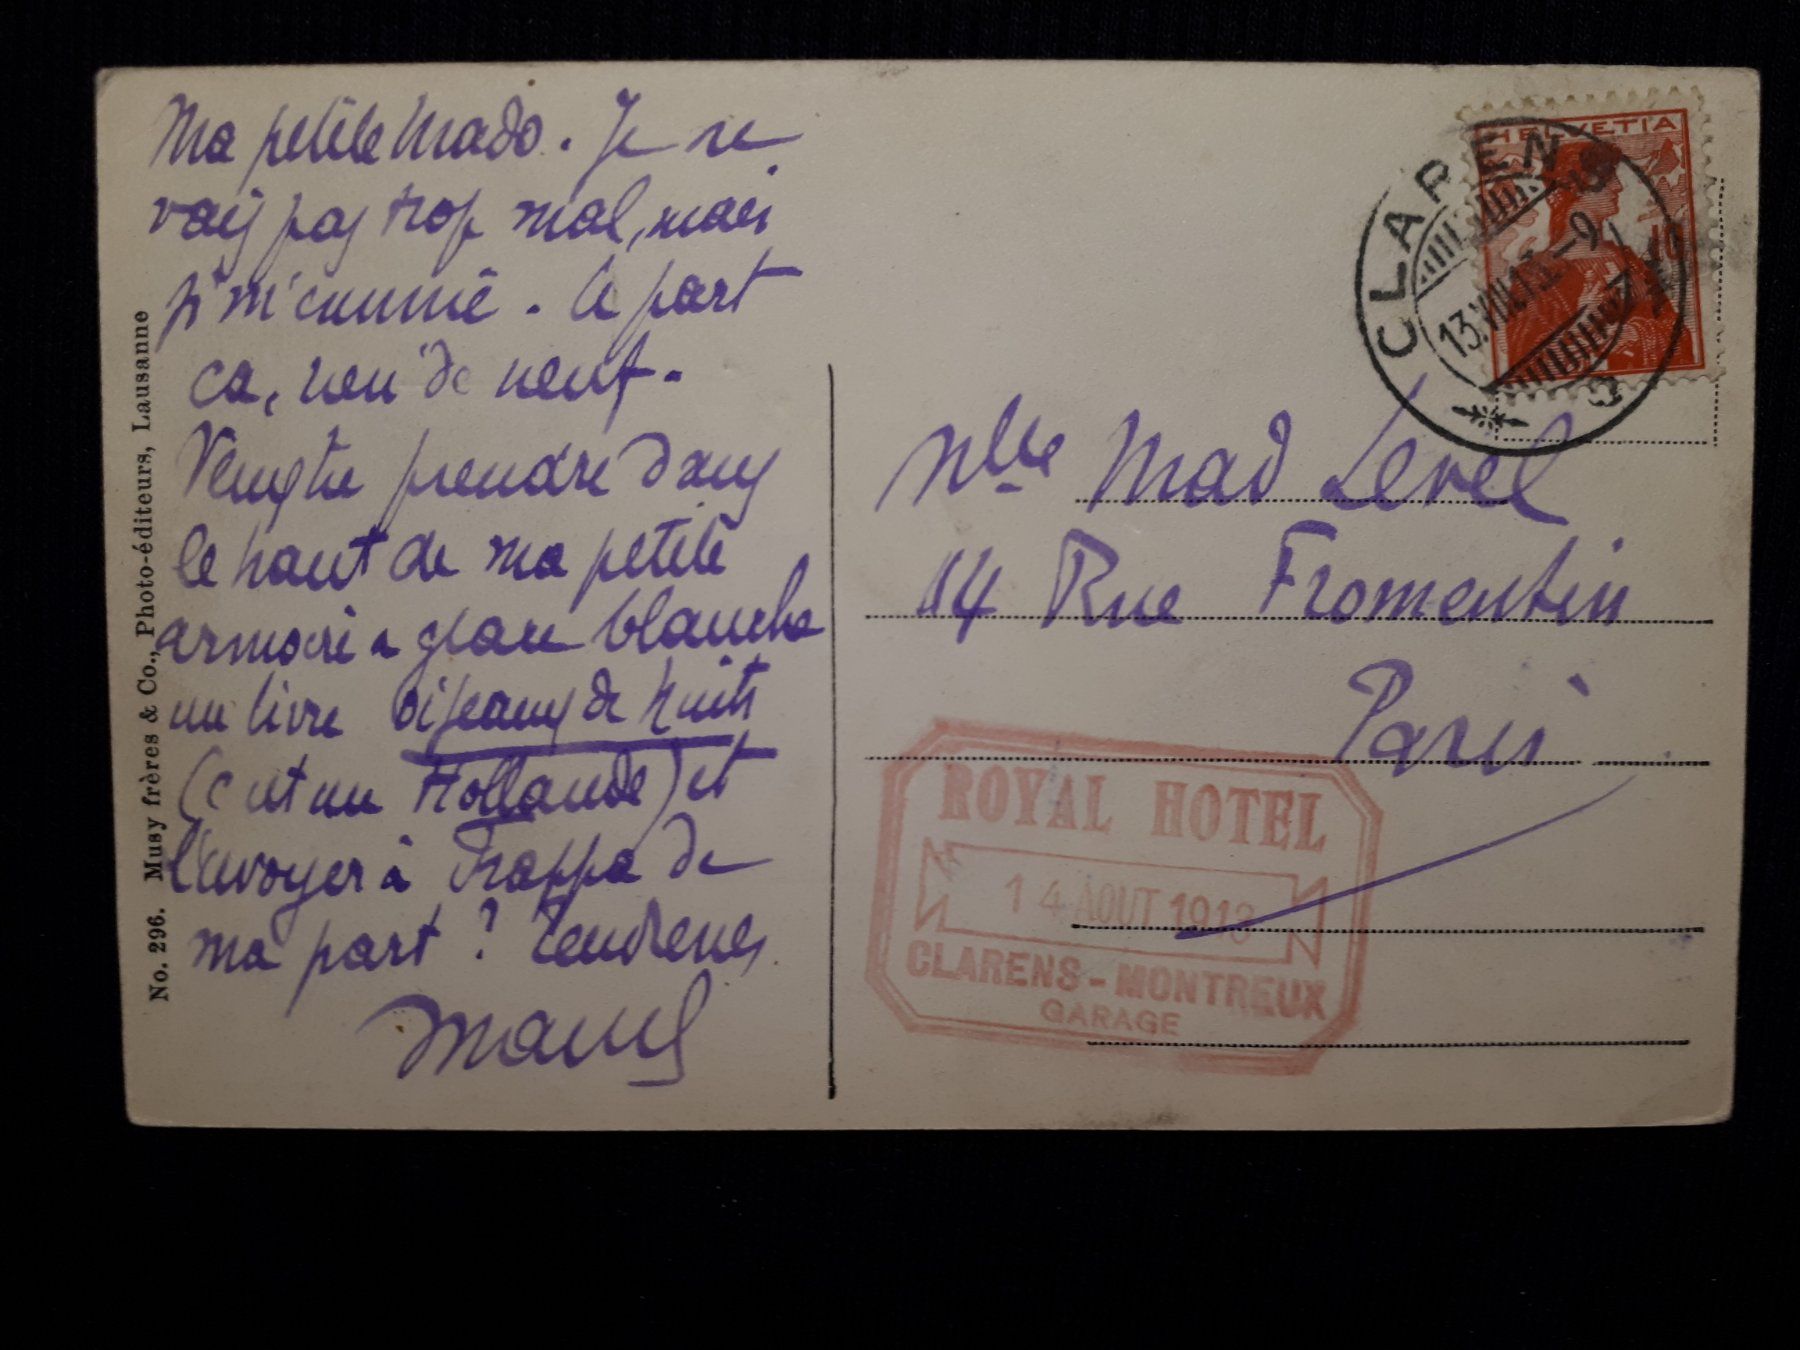 Ma petite Mado. Je ne
vais pas trop mal, mais
je m'ennuie. A part
ca, rien de neuf.
Veux tu prendre dans
le haut de ma petite
armoire a glace blanche
un livre oiseaux de nuits
(c'est un Hollande) et
l'envoyer à Frappa de
ma part ? Tendresses
No. 296. Musy frères & Co., Photo-éditeurs, Lausanne
HELVETIA
CLARENS
13.VIII.13.-9
Mlle Mad Level
14 Rue Fromentin
Paris
ROYAL HOTEL
14 AOUT 1913
CLARENS - MONTREUX
GARAGE